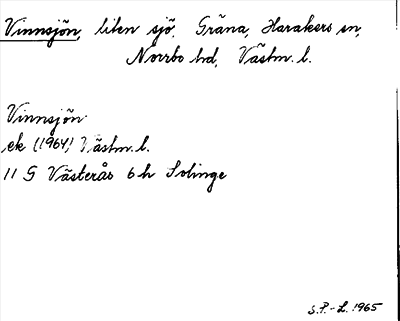 Vinnsjön, liten sjö. Gräna, Harakers sn,
Norrbo hd, Västm. l.
Vinnsjön
ek (1964) Västm. l.
11 G Västerås 6 h Solinge
S.P.-L. 1965